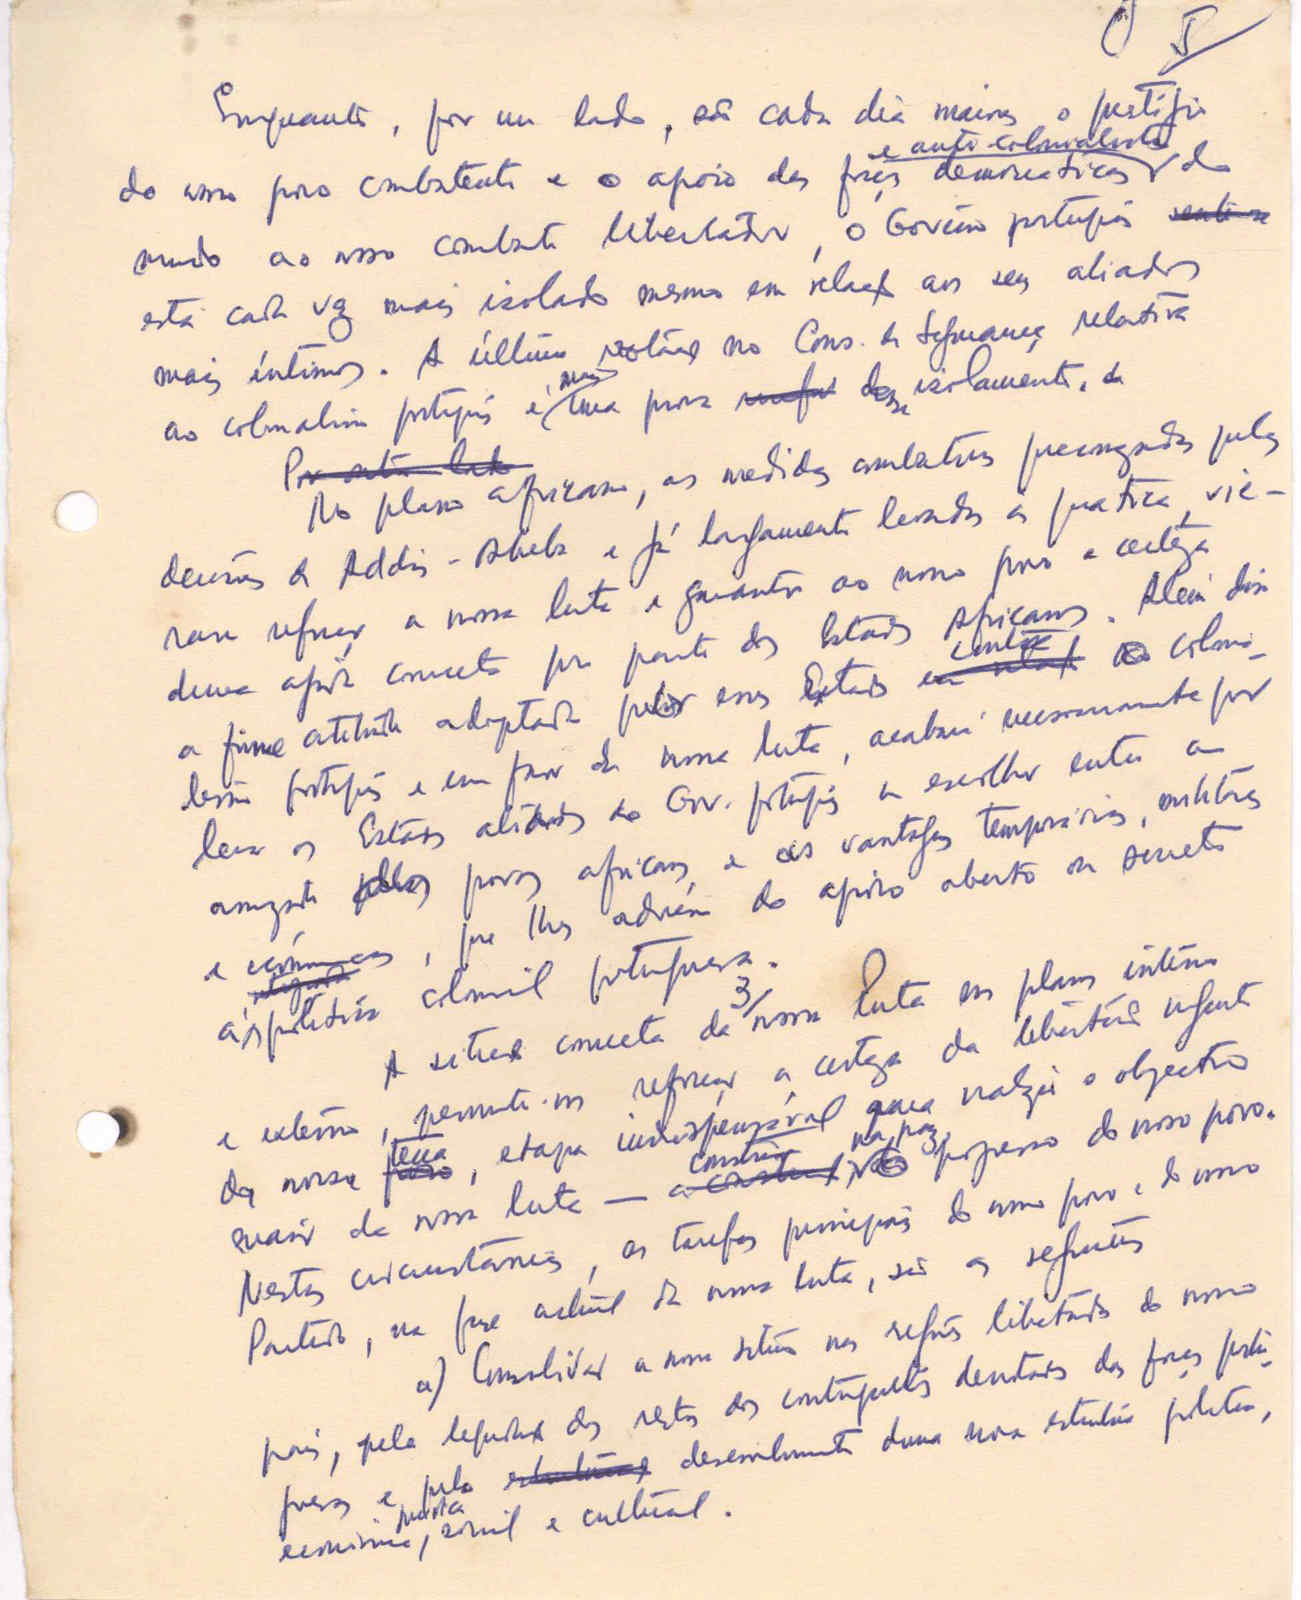 5
Enquanto, por um lado, são cada dia maiores o prestígio
e anti-colonialistas
do nosso povo combatente e o apoio das forças democráticas do
mundo ao nosso combate libertador, o Govêrno português sente-se
está cada vez mais isolado mesmo em relação aos seus aliados
mais íntimos. A última votação no Cons. de Segurança relativa
ao colonialismo português é mais uma prova desse isolamento.
Por outro lado
No plano africano, as medidas combativas preconizadas pelas
decisões de Addis-Abeba e já largamente levadas à prática, vie-
ram reforçar a nossa luta e garantir ao nosso povo a certeza
duma apôio concreto por parte dos Estados Africanos. Além disso
contra
a firme atitude adoptada pelos esses Estados em relação ao colonia-
lismo português e em favor da nossa luta, acabará necessariamente por
levar os Estados aliados do Gov. português a escolher entre a
amizade pelos povos africanos e as vantagens temporárias, militares
e económicas, que lhes advêm do apôio aberto ou secreto
à política colonial portuguesa.
3/
A situação concreta da nossa luta nos planos interno
e externo, permite-nos reforçar a certeza da libertação urgente
terra
da nossa povo, etapa indispensável para realizar o objectivo
construir na paz,
maior da nossa luta — o progresso do nosso povo.
Nestas circunstâncias, as tarefas principais do nosso povo e do nosso
Partido, na fase actual da nossa luta, são as seguintes
a) Consolidar a nossa situação nas regiões libertadas do nosso
país, pela liquidação dos restos dos contingentes derrotados das forças portu-
guesas e pelo desenvolvimento duma nova estrutura política,
económica, social e cultural.